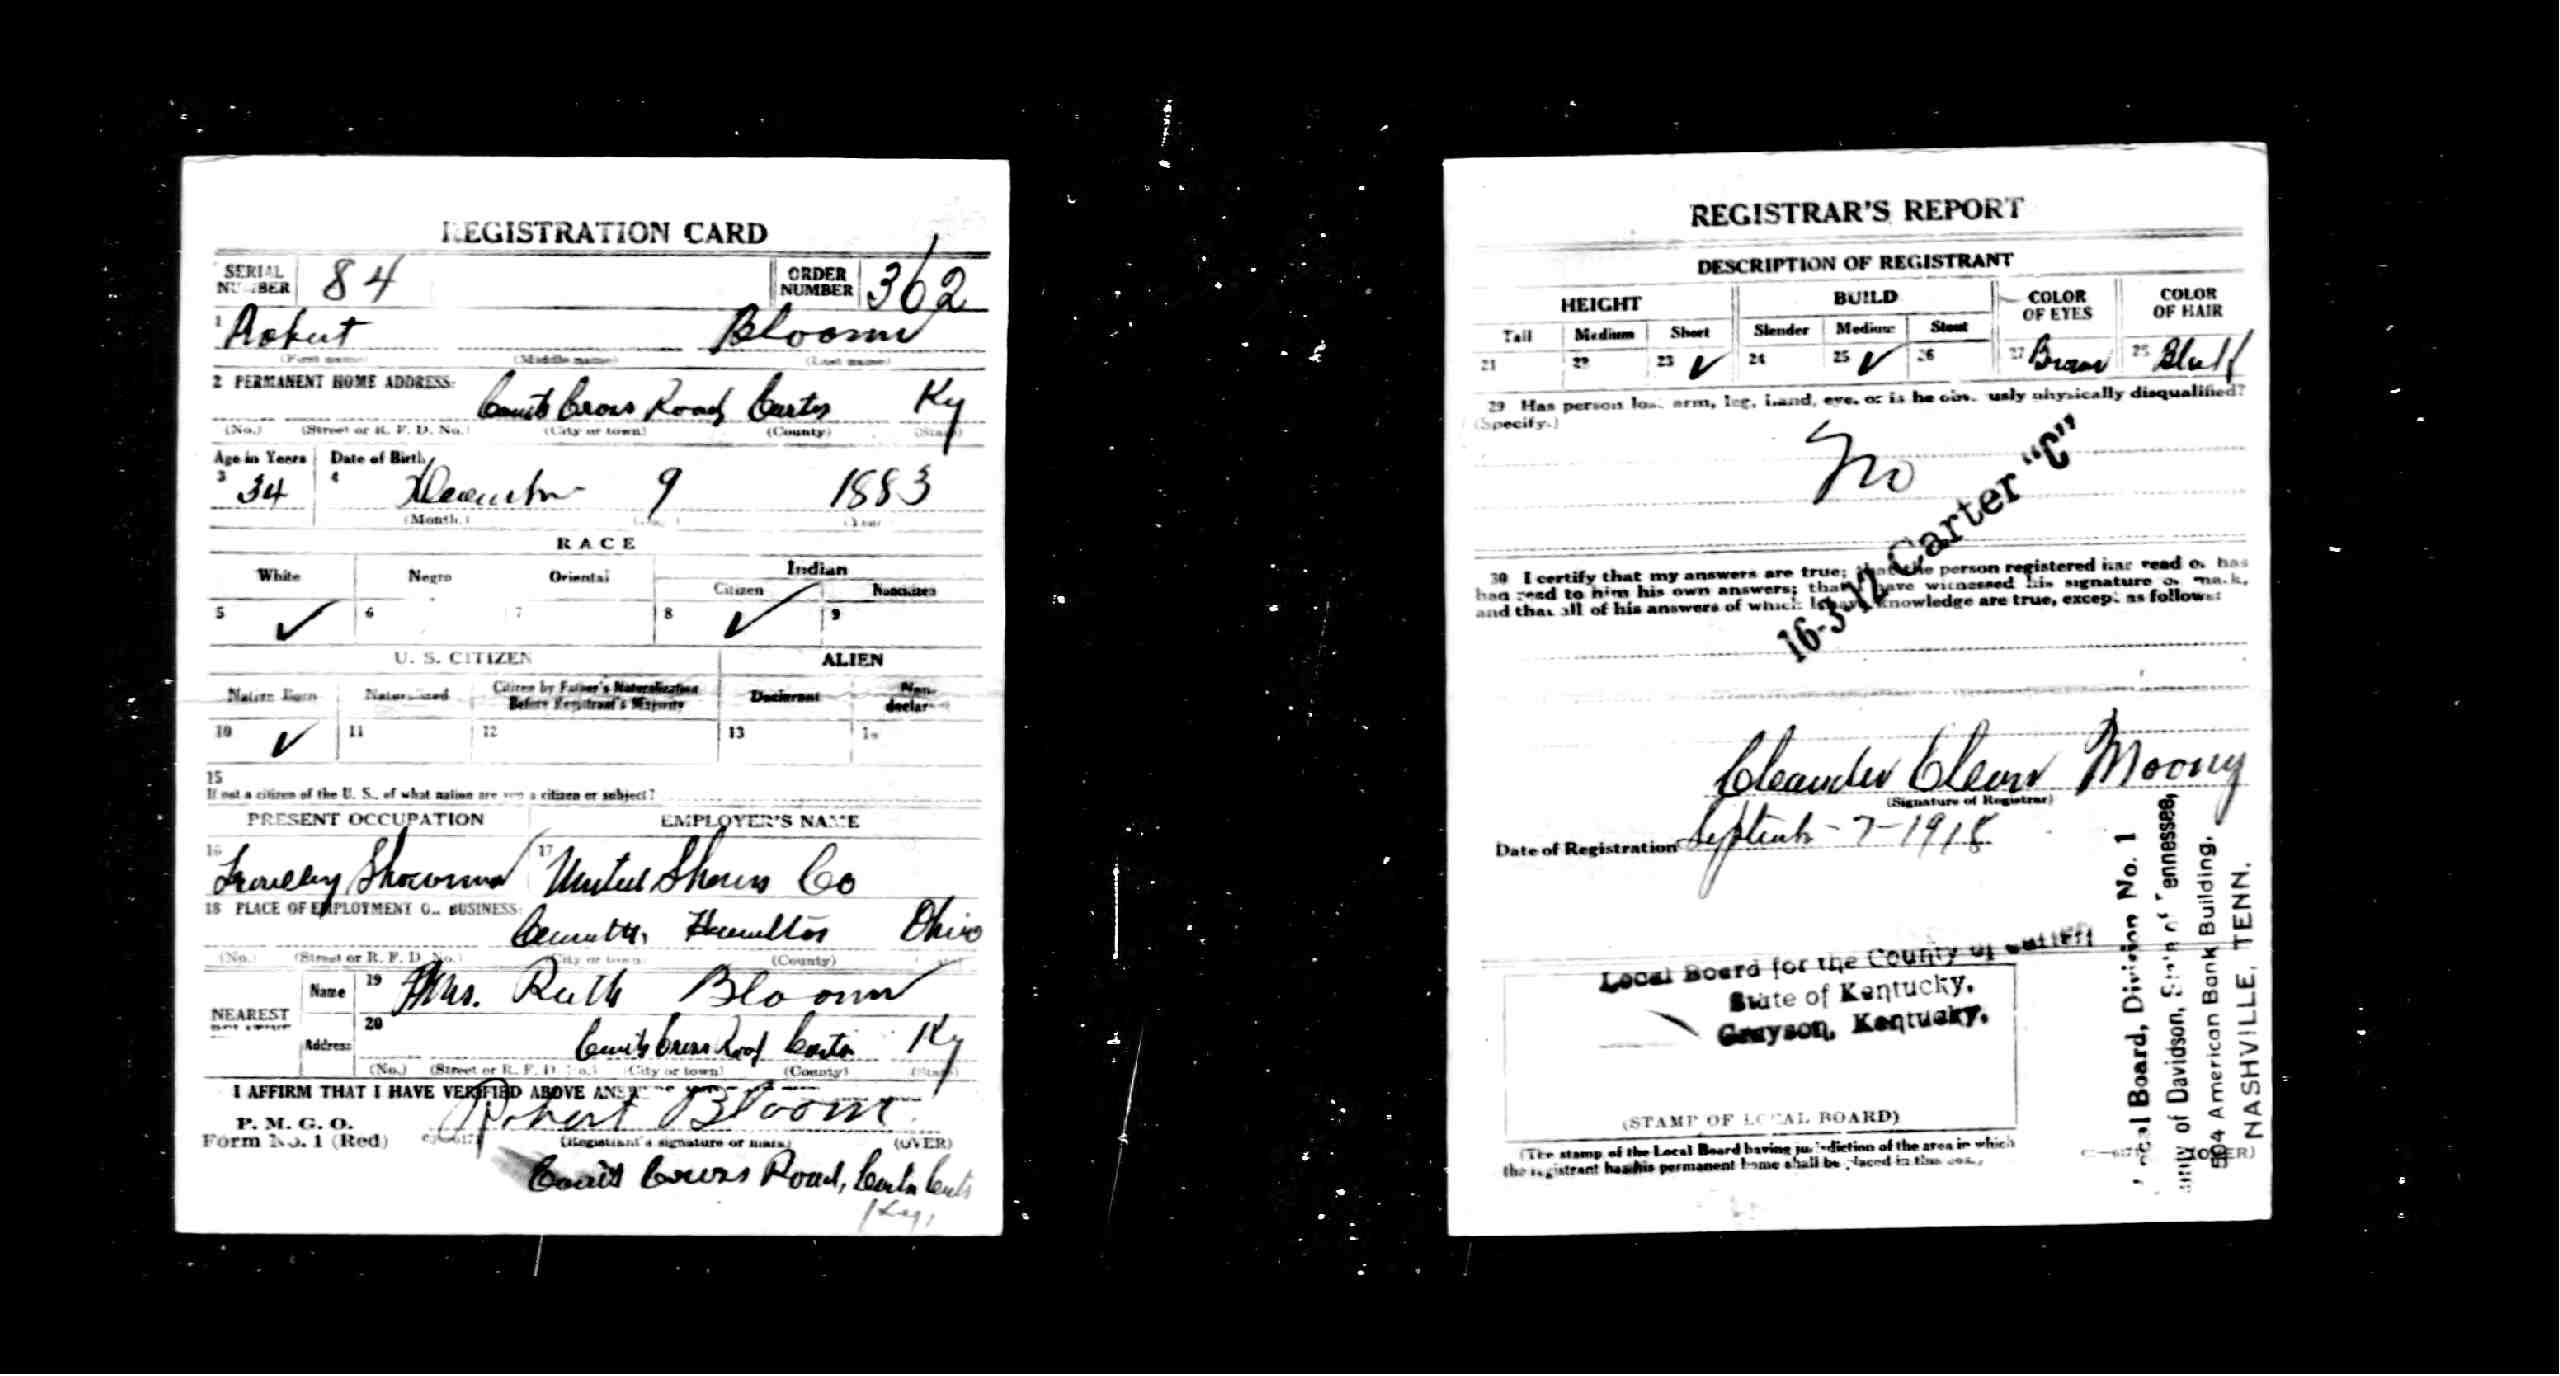 REGISTRATION CARD
SERIAL NUMBER 84 ORDER NUMBER 362
1 Robert Bloom
(First name) (Middle name) (Last name)
2 PERMANENT HOME ADDRESS:
Cross Road Carter Ky
(No.) (Street or R. F. D. No.) (City or town) (County) (State)
Age in Years Date of Birth
3 34 4 December 9 1883
(Month.) (Year)
RACE
White Negro Oriental Indian
Citizen Noncitizen
5 ✓ 6 7 8 ✓ 9
U. S. CITIZEN ALIEN
Native Born Naturalized Citizen by Father's Naturalization Before Registrant's Majority Declarant Non-declarant
10 ✓ 11 12 13
15
If not a citizen of the U. S., of what nation are you a citizen or subject?
PRESENT OCCUPATION EMPLOYER'S NAME
16 Showman 17 United Shows Co
18 PLACE OF EMPLOYMENT OR BUSINESS:
Hamilton Ohio
(No.) (Street or R. F. D. No.) (City or town) (County)
NEAREST Name 19 Mrs. Ruth Bloom
Address 20 Cross Road Carter Ky
(No.) (Street or R. F. D. No.) (City or town) (County) (State)
I AFFIRM THAT I HAVE VERIFIED ABOVE
P. M. G. O.
Form No. 1 (Red) Robert Bloom
(Registrant's signature or mark) (OVER)
Road, Carter
Ky,
REGISTRAR'S REPORT
DESCRIPTION OF REGISTRANT
HEIGHT BUILD COLOR OF EYES COLOR OF HAIR
Tall Medium Short Slender Medium Stout
21 22 23 ✓ 24 25 ✓ 26 27 Brown
29 Has person lost arm, leg, hand, eye, or is he obviously physically disqualified?
(Specify.)
No
16-3-12 Carter "C"
30 I certify that my answers are true; that the person registered has read or has
had read to him his own answers; that I have witnessed his signature or mark,
and that all of his answers of which I have knowledge are true, except as follows:
Moony
(Signature of Registrar)
Date of Registration 7-1918
Local Board for the County of
State of Kentucky,
Grayson, Kentucky.
(STAMP OF LOCAL BOARD)
(The stamp of the Local Board having jurisdiction of the area in which
the registrant has his permanent home shall be placed in this box.)
(OVER)
Local Board, Division No. 1
County of Davidson, State of Tennessee,
504 American Bank Building,
NASHVILLE, TENN.